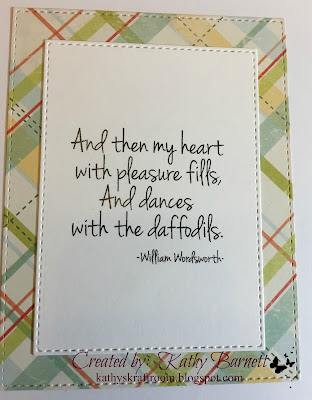 And then my heart
with pleasure fills,
And dances
with the daffodils.
-William Wordsworth-
Created by: Kathy Barnett
kathyskraftroom.blogspot.com